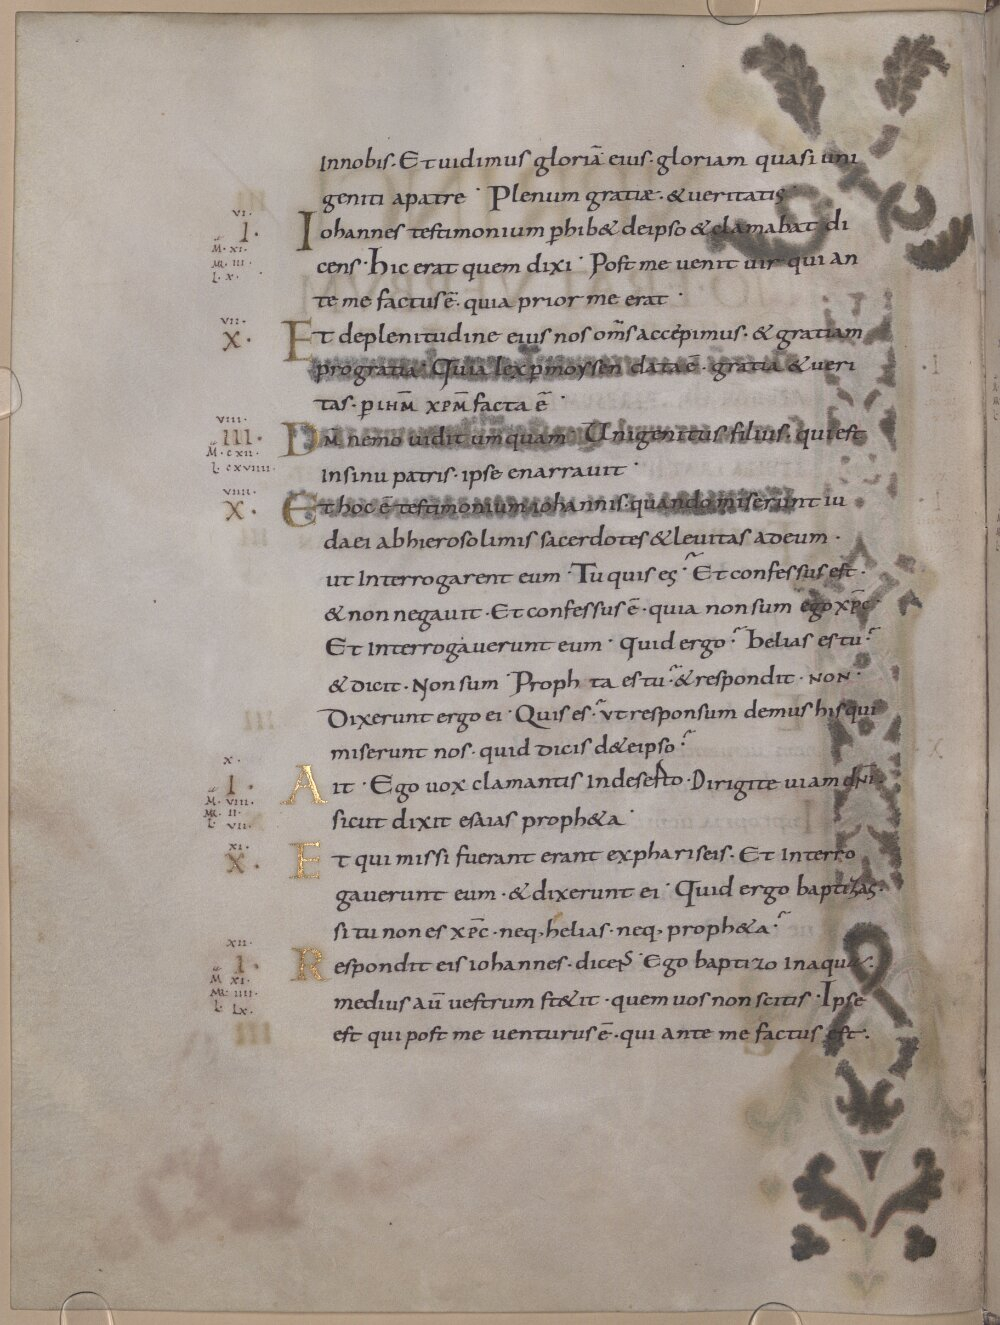 Innobis. Et uidimus gloriā eius. gloriam quasi uni
geniti apatre. Plenum gratiæ. & ueritatis
VI.
I.
M. XI.
MR. III.
L. X.
Iohannes testimonium phib& deipso & clamabat di
cens. Hic erat quem dixi. Post me uenit uir qui an
te me factus ē. quia prior me erat.
VII.
X.
Et deplenitudine eius nos om̄s accepimus. & gratiam
progratia. Quia lex p moysen data ē. gratia & ueri
tas. p IHM̄ XPM̄ facta ē.
VIII.
III.
M. CXII.
L. CXVIIII.
DM̄ nemo uidit umquam. Unigenitus filius. qui est
insinu patris. ipse enarrauit.
VIIII.
X.
Et hoc ē testimonium iohannis. quando miserunt iu
daei abhierosolimis sacerdotes & leuitas adeum.
ut Interrogarent eum. Tu quis es. Et confessus est.
& non negauit. Et confessus ē. quia non sum ego xp̄c.
Et Interrogauerunt eum. Quid ergo. helias es tu.
& dicit. Non sum. Proph ta es tu. & respondit. NON.
Dixerunt ergo ei. Quis es. ut responsum demus his qui
miserunt nos. quid dicis de&eipso.
X.
I.
M. VIII.
MR. II.
L. VII.
Ait. Ego uox clamantis Indeserto. Dirigite uiam dn̄i.
sicut dixit esaias proph&a.
XI.
X.
Et qui missi fuerant erant expharíseis. Et Interro
gauerunt eum. & dixerunt ei. Quid ergo baptizas.
si tu non es xp̄c. neq, helias. neq, proph&a.
XII.
I.
M XI.
MR. IIII.
L. IX.
Respondit eis iohannes. dicens. Ego baptizo Inaqua.
medius aū uestrum st&it. quem uos non scitis. Ipse
est qui post me uenturus ē. qui ante me factus est.